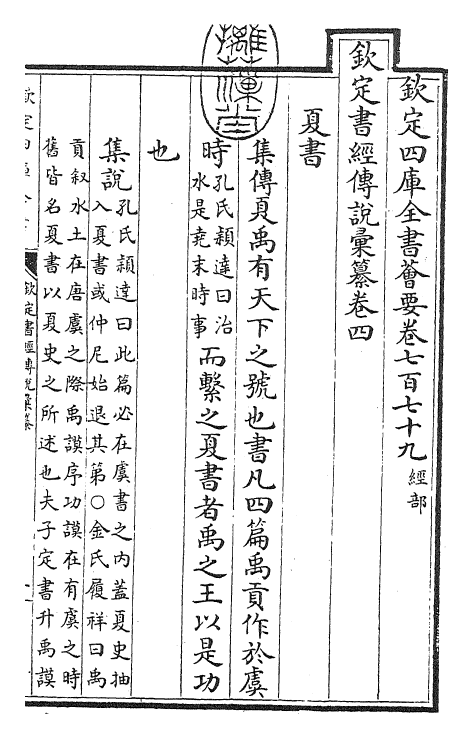 摛藻堂
欽定四庫全書薈要卷七百七十九 經部
欽定書經傳說彙纂卷四
夏書
集傳夏禹有天下之號也書凡四篇禹貢作於虞
時孔氏穎達曰治水是堯末時事而繫之夏書者禹之王以是功
也
集說孔氏穎達曰此篇必在虞書之内蓋夏史抽
入夏書或仲尼始退其第○金氏履祥曰禹
貢叙水土在唐虞之際禹謨序功謨在有虞之時
舊皆名夏書以夏史之所述也夫子定書升禹謨
欽定書經傳說彙纂